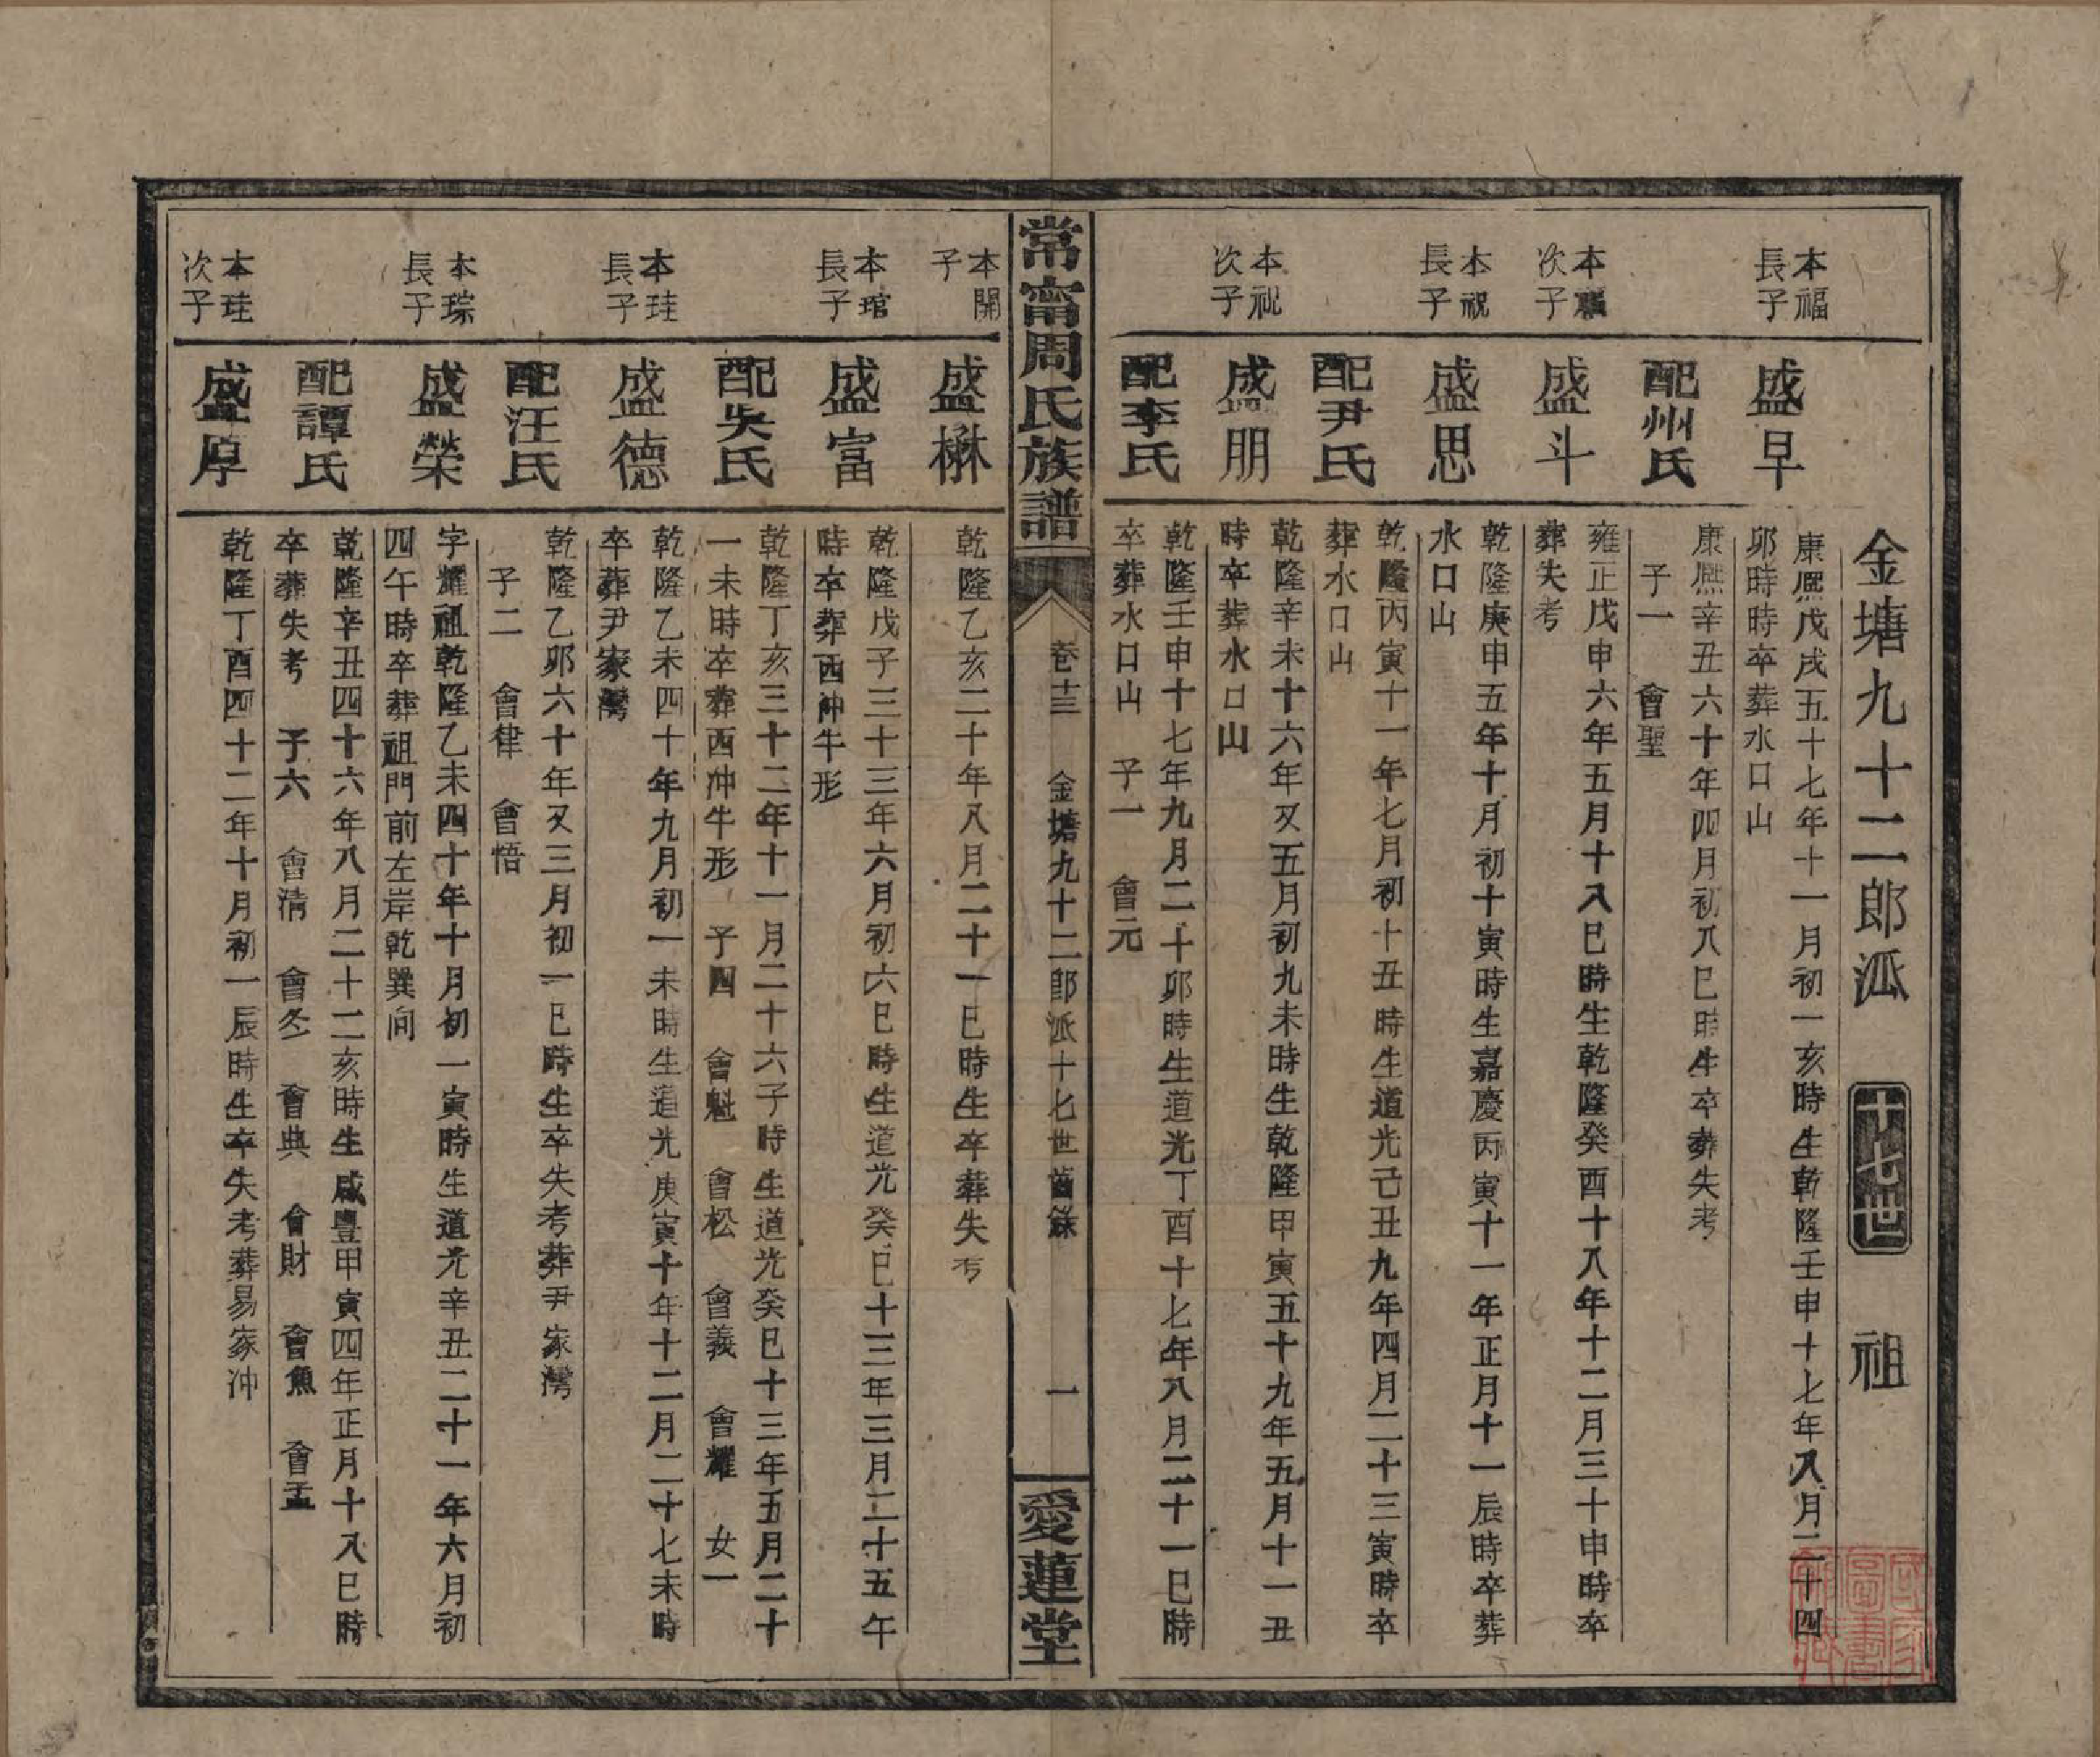 金塘九十二郎派 十七世 祖
本福長子
盛早
康熈戊戌五十七年十一月初一亥時生乾隆壬申十七年八月二十四
卯時時卒葬水口山
配州氏
康熈辛丑六十年四月初八巳時生卒葬失考
子一 會聖
本福次子
盛斗
雍正戊申六年五月十八巳時生乾隆癸酉十八年十二月三十申時卒
葬失考
本祝長子
盛思
乾隆庚申五年十月初十寅時生嘉慶丙寅十一年正月十一辰時卒葬
水口山
配尹氏
乾隆丙寅十一年七月初十丑時生道光己丑九年四月二十三寅時卒
葬水口山
本祝次子
盛朋
乾隆辛未十六年又五月初九未時生乾隆甲寅五十九年五月十一丑
時卒葬水口山
配李氏
乾隆壬申十七年九月二十卯時生道光丁酉十七年八月二十一巳時
卒葬水口山 子一 會元
常甯周氏族譜
卷十三 金塘九十二郎派十七世齒錄 一
愛蓮堂
本開子
盛楙
乾隆乙亥二十年八月二十一巳時生卒葬失考
本琯長子
盛富
乾隆戊子三十三年六月初六巳時生道光癸巳十三年三月二十五午
時卒葬西沖牛形
配吳氏
乾隆丁亥三十二年十一月二十六子時生道光癸巳十三年五月二十
一未時卒葬西沖牛形 子四 會魁 會松 會義 會耀 女一
本珪長子
盛德
乾隆乙未四十年九月初一未時生道光庚寅十年十二月二十七未時
卒葬尹家灣
配汪氏
乾隆乙卯六十年又三月初一巳時生卒失考葬尹家灣
子二 會律 會悟
本琮長子
盛榮
字耀祖乾隆乙未四十年十月初一寅時生道光辛丑二十一年六月初
四午時卒葬祖門前左岸乾巽向
配譚氏
乾隆辛丑四十六年八月二十二亥時生咸豐甲寅四年正月十八巳時
卒葬失考 子六 會清 會冬 會典 會財 會魚 會孟
本珪次子
盛厚
乾隆丁酉四十二年十月初一辰時生卒失考葬易家沖